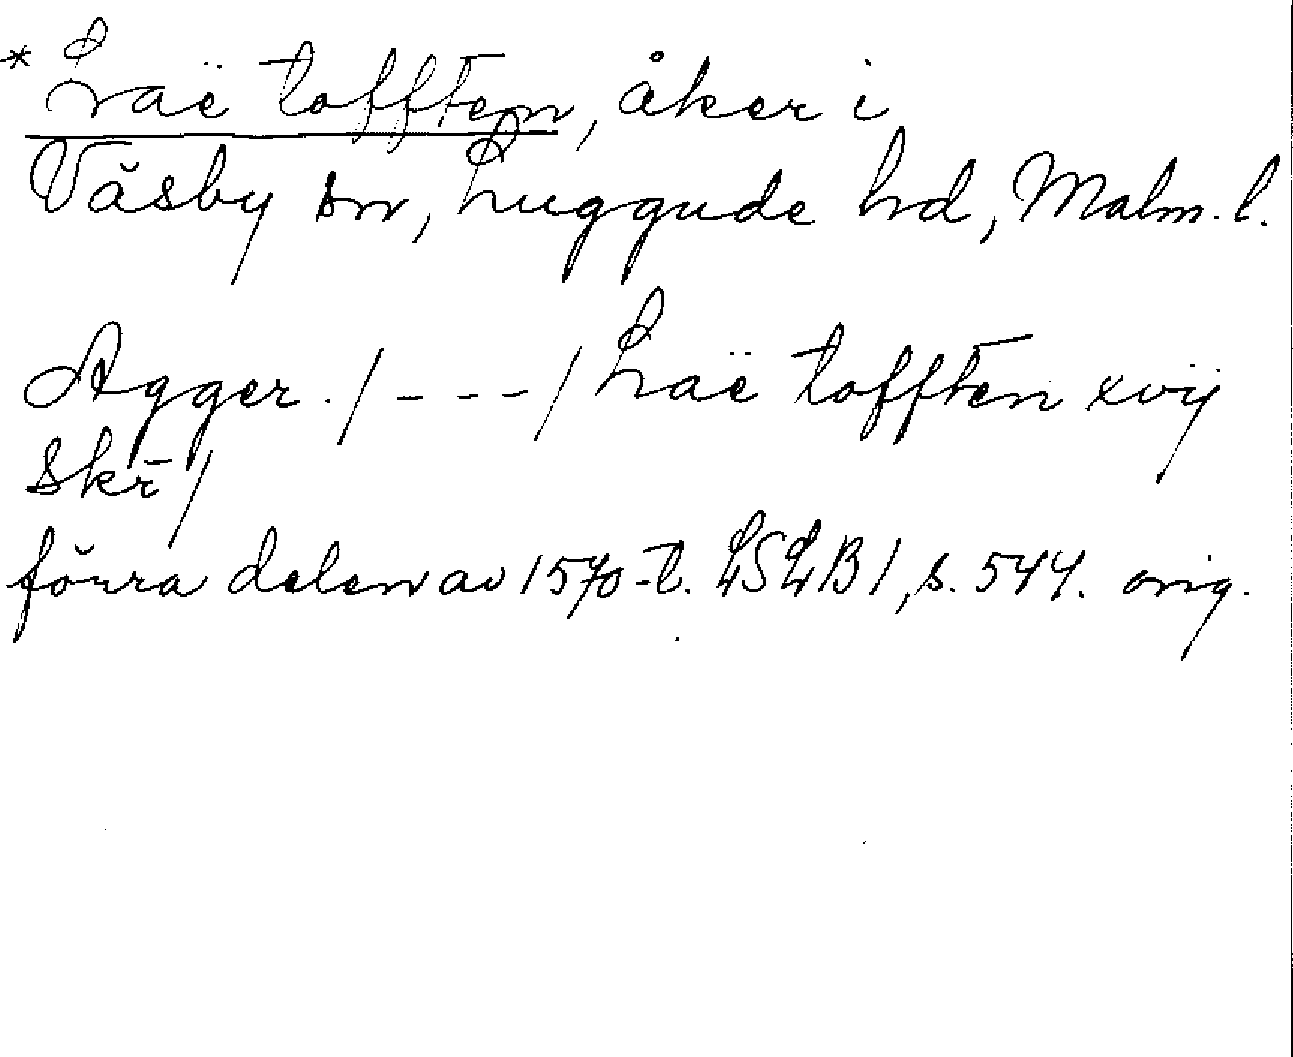 *Laë tofften, åker i
Väsby sn, Luggude hd, Malm. l.
Agger. / - - - / Laë tofften xvij
Skr̄ /
förra delen av 1570-t. LSLB 1, s. 544. orig.